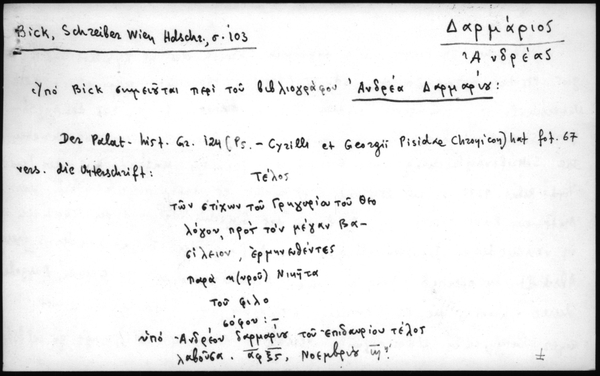 Bick, Schreiber Wien Hdschr., σ. 103
Δαρμάριος
Ἀνδρέας
Ὑπὸ Bick σημειοῦται περὶ τοῦ βιβλιογράφου Ἀνδρέα Δαρμαρίου:
Der Palat. hist. Gr. 124 (Ps. - Cyrilli et Georgii Pisidae Chronicon) hat fol. 67
vers. die Unterschrift:
Τέλος
τῶν στίχων τοῦ Γρηγορίου τοῦ Θεο
λόγου, πρὸς τὸν μέγαν Βα-
σίλειον, ἑρμηνευθέντες
παρὰ κ(υροῦ) Νικήτα
τοῦ φιλο
σόφου: -
ὑπὸ Ἀνδρέου δαρμαρίου τοῦ ἐπιδαυρίου τέλος
λαβοῦσα. αφξς, Νοεμβρίῳ